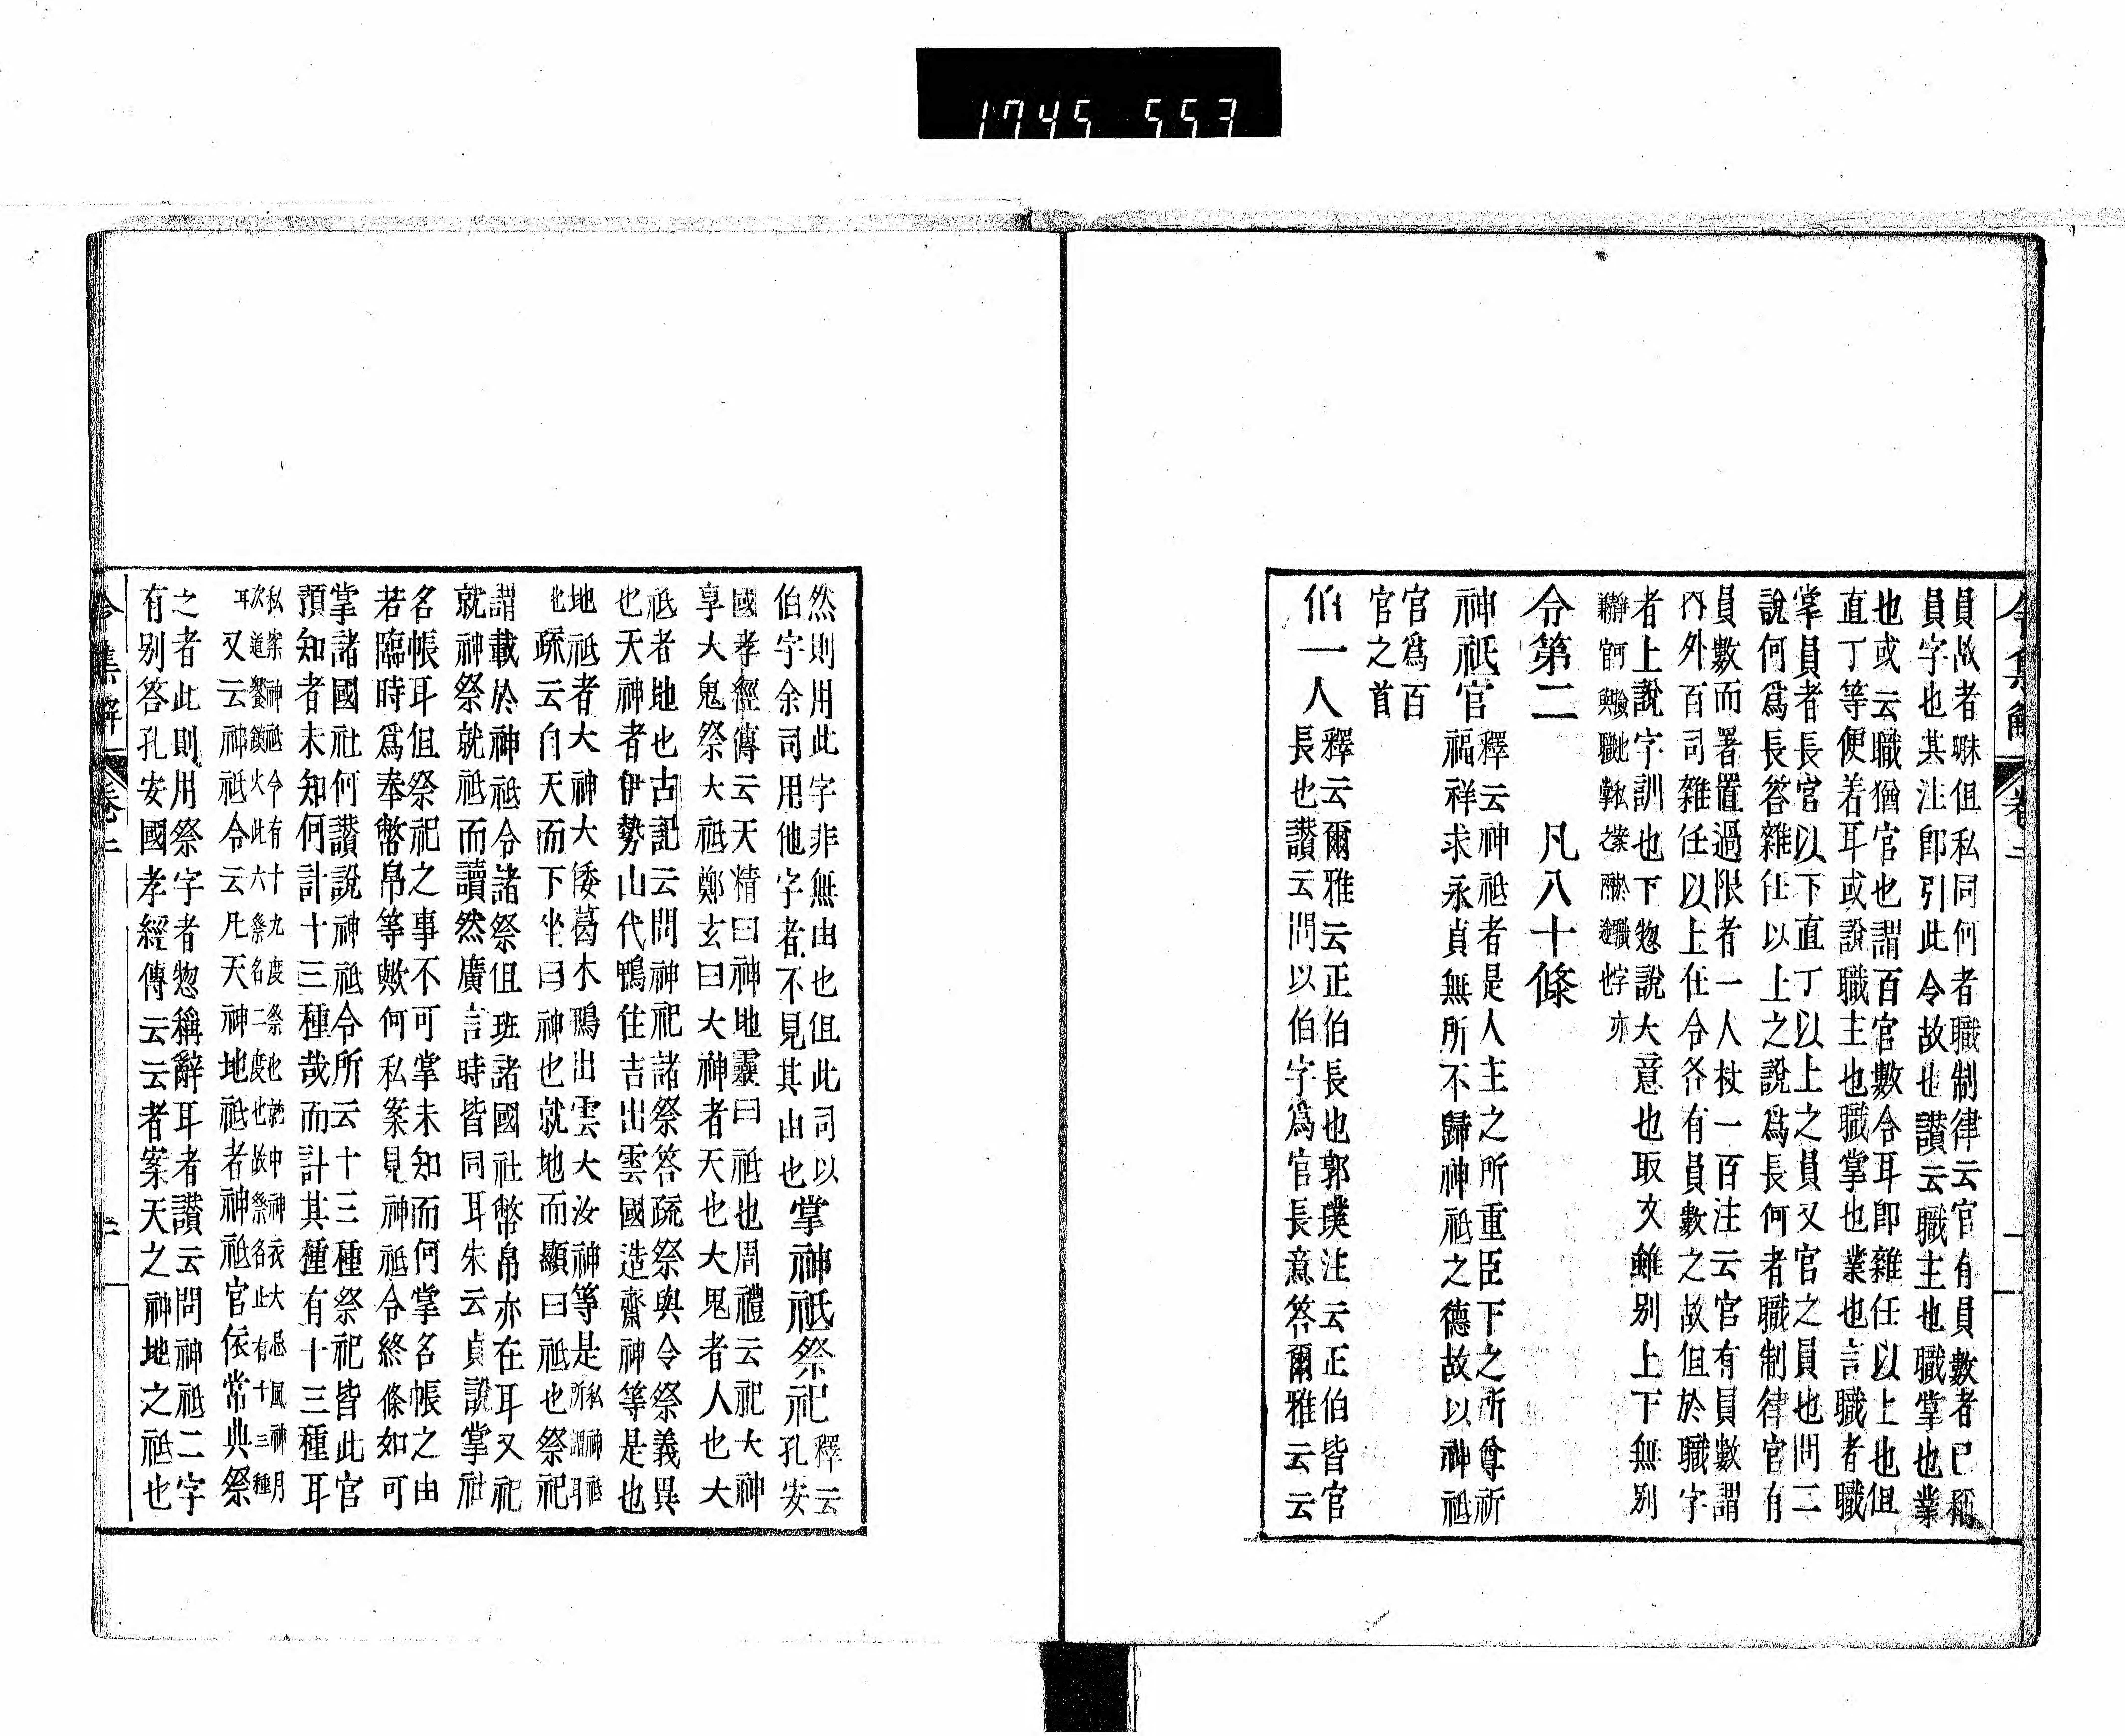 1745 553
員故者昧但私同何者職制律云官有員數者已稱
員字也其注卽引此令故也讃云職主也職掌也業
也或云職猶官也謂百官數令耳卽雜任以上也但
直丁等便着耳或說職主也職掌也業也言職者職
掌員者長官以下直丁以上之員又官之員也問二
說何爲長答雜任以上之說爲長何者職制律官有
員數而署置過限者一人杖一百注云官有員數謂
內外百司雜任以上在令各有員數之故但於職字
者上說字訓也下惣說大意也取文雖别上下無别
令第二 凡八十條
神祇官
釋云神祇者是人主之所重臣下之所尊祈
福祥求永貞無所不歸神祇之德故以神祇
官爲百
官之首
伯一人
釋云爾雅云正伯長也郭璞注云正伯皆官
長也讃云問以伯字爲官長意答爾雅云云
然則用此字非無由也但此司以
伯字余司用他字者不見其由也
掌神祇祭祀
釋云
孔安
國孝經傳云天精曰神地靈曰祇也周禮云祀大神
享大鬼祭大祇鄭玄曰大神者天也大鬼者人也大
祇者地也古記云問神祀諸祭答疏祭與令祭義異
也天神者伊勢山代鴨住吉出雲國造齋神等是也
地祇者大神大倭葛木鴨出雲大汝神等是
私神祇
所謂耳
也
疏云自天而下坐曰神也就地而顯曰祇也祭祀
謂載於神祇令諸祭但班諸國社幣帛亦在耳又祀
就神祭就祇而讀然廣言時皆同耳朱云貞說掌社
名帳耳但祭祀之事不可掌未知而何掌名帳之由
若臨時爲奉幣帛等歟何私案見神祇令終條如可
掌諸國社何讃說神祇令所云十三種祭祀皆此官
預知者未知何計十三種哉而計其種有十三種耳
私案神祇令有十九度祭也就中神衣大忌風神月
次道饗鎭火此六祭名二度也故祭名止有十三種
耳
又云神祇令云凡天神地祇者神祇官依常典祭
之者此則用祭字者惣稱辭耳者讃云問神祇二字
有别答孔安國孝經傳云云者案天之神地之祇也
令集解 卷二 二